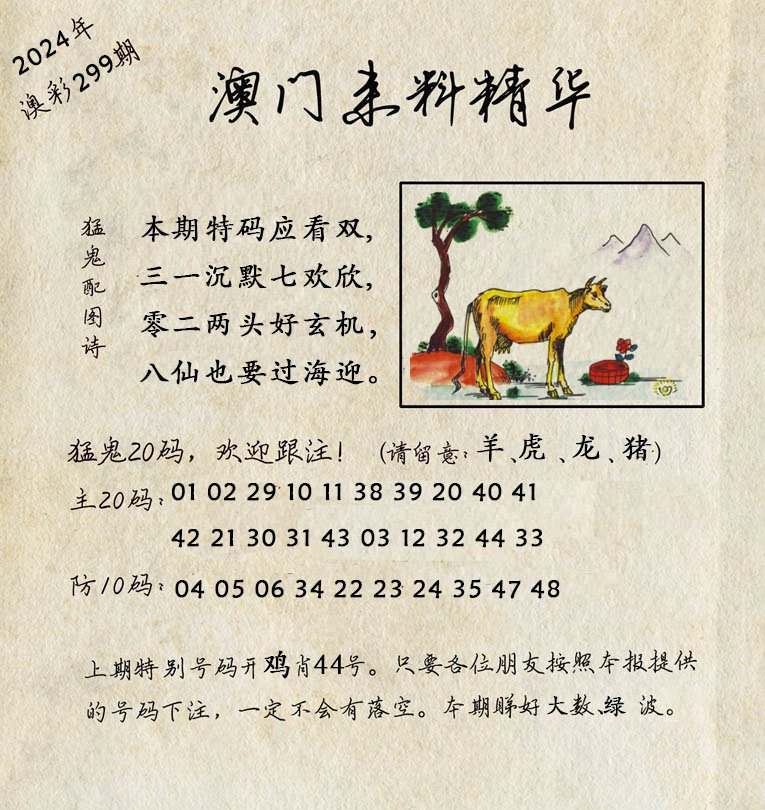 2024年
澳彩299期
澳门来料精华
猛鬼配图诗
本期特码应看双,
三一沉默七欢欣,
零二两头好玄机,
八仙也要过海迎。
猛鬼20码，欢迎跟注！（请留意：羊、虎、龙、猪）
主20码：01 02 29 10 11 38 39 20 40 41
42 21 30 31 43 03 12 32 44 33
防10码：04 05 06 34 22 23 24 35 47 48
上期特别号码开鸡肖44号。只要各位朋友按照本报提供
的号码下注，一定不会有落空。本期睇好大数、绿 波。